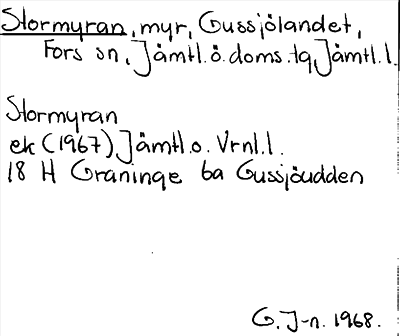 Stormyran, myr, Gussjölandet,
Fors sn, Jämtl.ö.doms.tg, Jämtl.l.
Stormyran
ek (1967) Jämtl.o. Vrnl.l.
18 H Graninge 6a Gussjöudden
G. J-n. 1968.